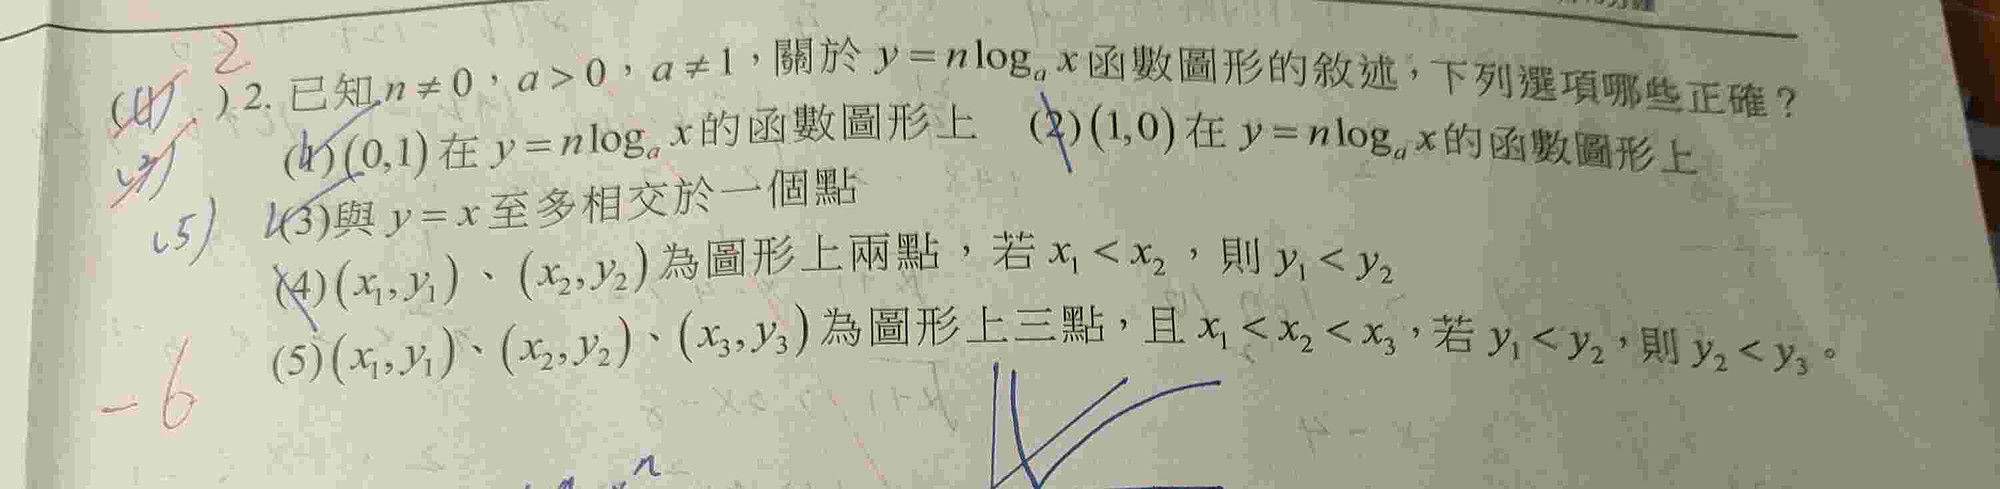 2
( ) 2. 已知 n ≠ 0，a > 0，a ≠ 1，關於 y = n logₐ x 函數圖形的敘述，下列選項哪些正確？
(1)(0,1) 在 y = n logₐ x 的函數圖形上 (2)(1,0) 在 y = n logₐ x 的函數圖形上
(5) (3)與 y = x 至多相交於一個點
(4)(x₁, y₁)、(x₂, y₂) 為圖形上兩點，若 x₁ < x₂，則 y₁ < y₂
(5)(x₁, y₁)、(x₂, y₂)、(x₃, y₃) 為圖形上三點，且 x₁ < x₂ < x₃，若 y₁ < y₂，則 y₂ < y₃。
-6
n